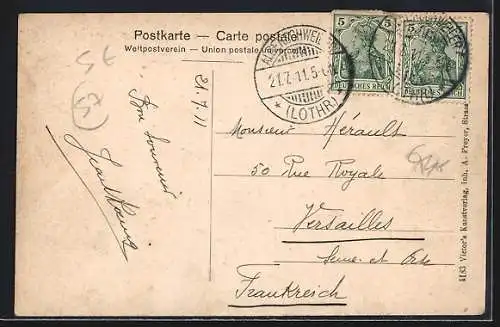 Postkarte – Carte postale
Weltpostverein – Union postale universelle
5 5
DEUTSCHES REICH
21.7.11.5-6
* (LOTHR)
21.7.11
Bon Souvenir
Monsieur Hérault
50 Rue Royale
Versailles
Seine et Oise
Frankreich
57
4163 Victor's Kunstverlag, Inh. A. Preyer, Strass